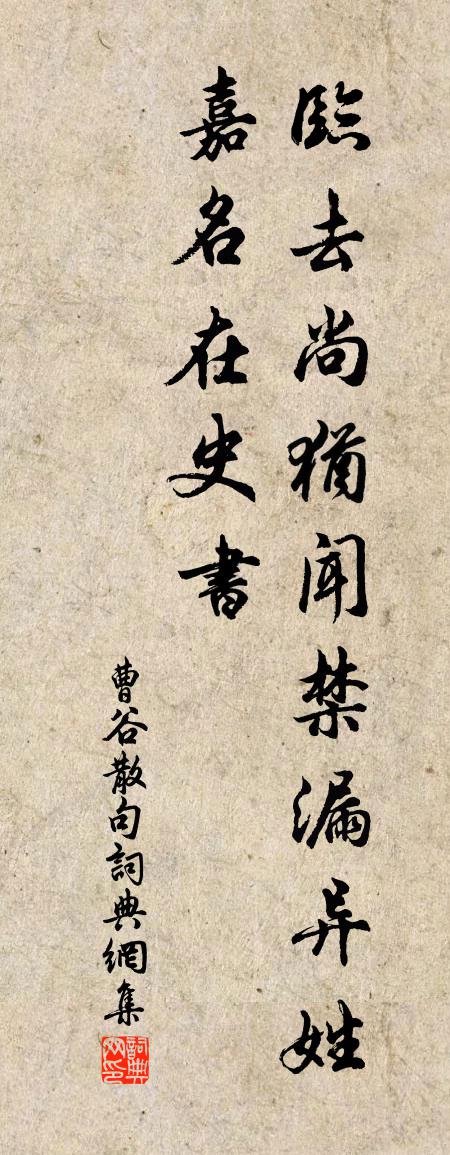 臨去尚猶闻禁漏异姓
嘉名在史書
曹谷散句詞典網集
詞典网印